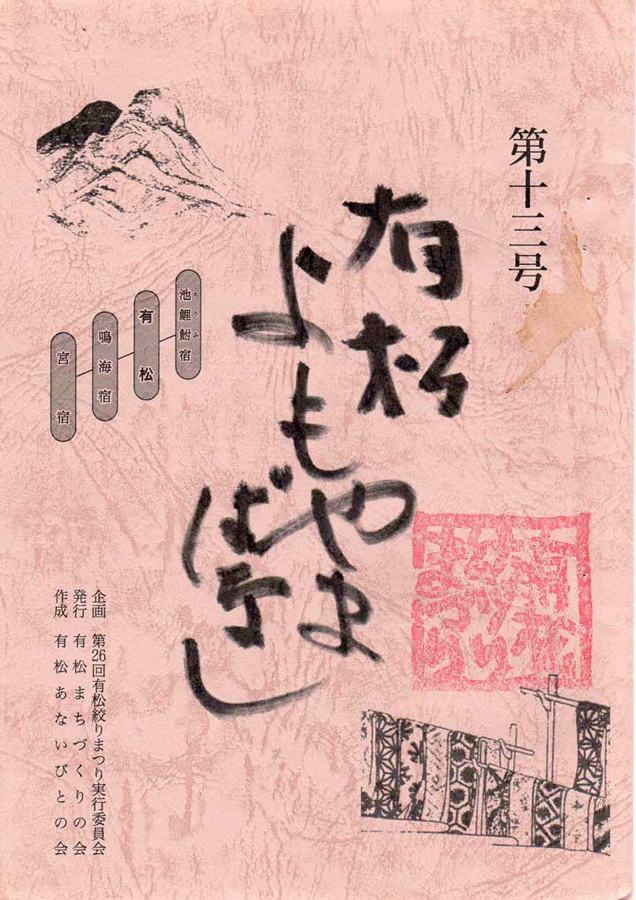 第十三号
有松
よもやま
ばなし
池鯉鮒宿
ちりふ
有松
鳴海宿
宮宿
企画 第26回有松絞りまつり実行委員会
発行 有松まちづくりの会
作成 有松あないびとの会